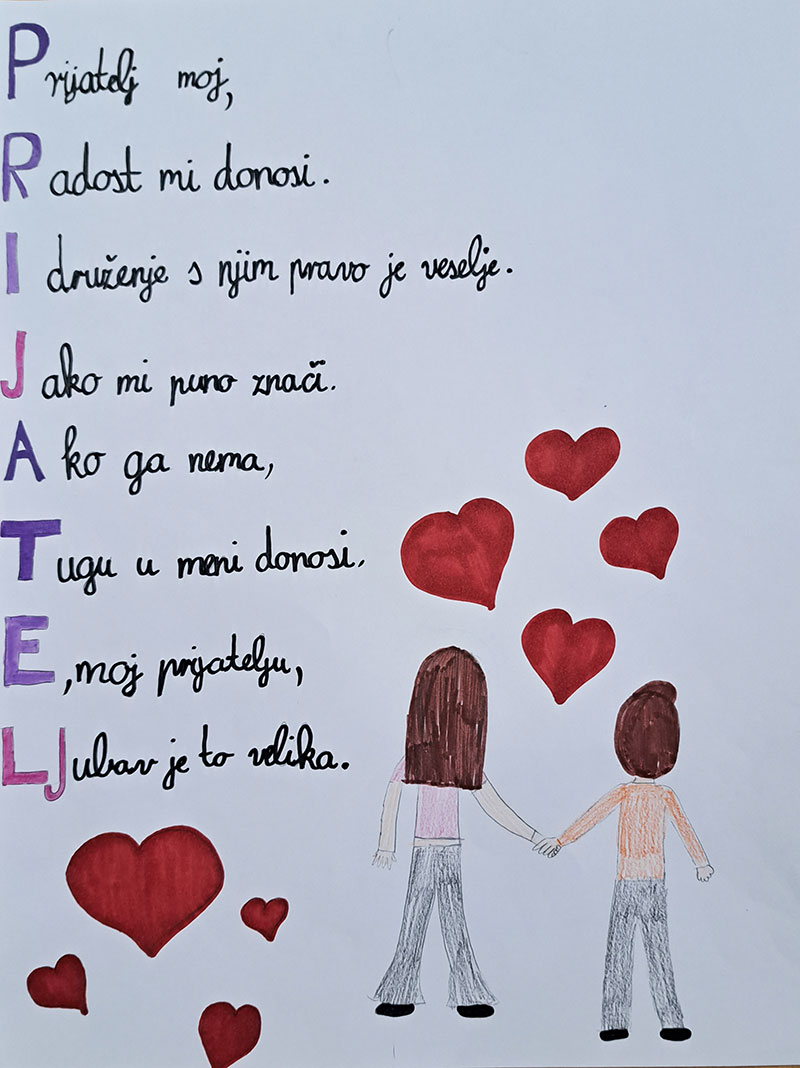 Prijatelj moj,
Radost mi donosi.
I druženje s njim pravo je veselje.
Jako mi puno znači.
Ako ga nema,
Tugu u meni donosi.
E, moj prijatelju,
LJubav je to velika.